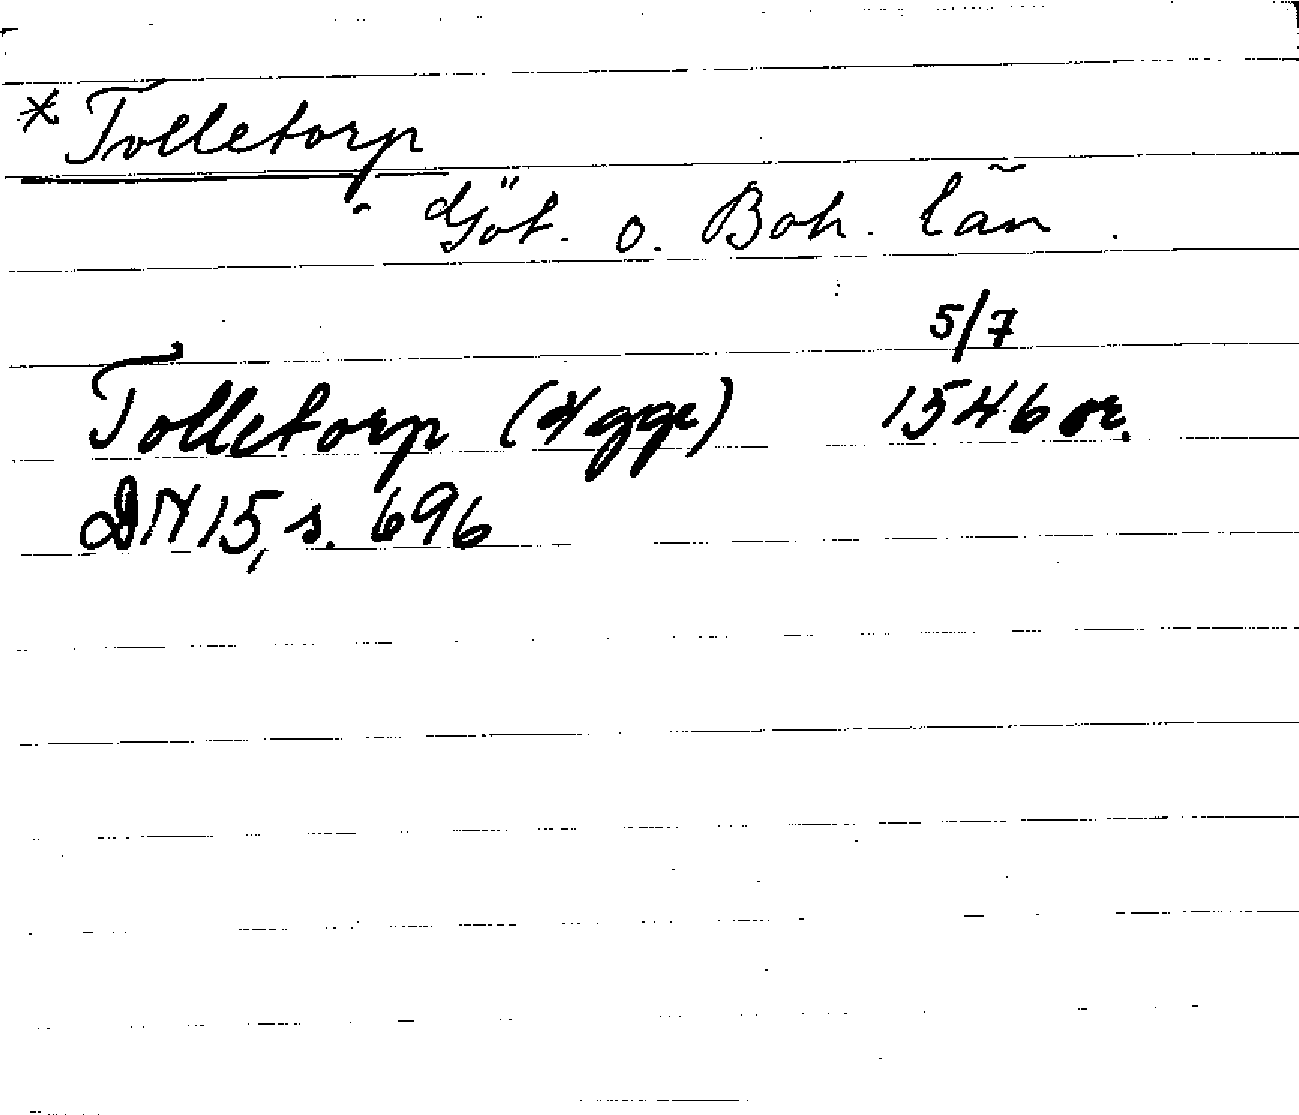 * Tolletorp
Göt. o. Boh. län
5/7
Tolletorp (4 ggr) 1546 or.
DN 15, s. 696